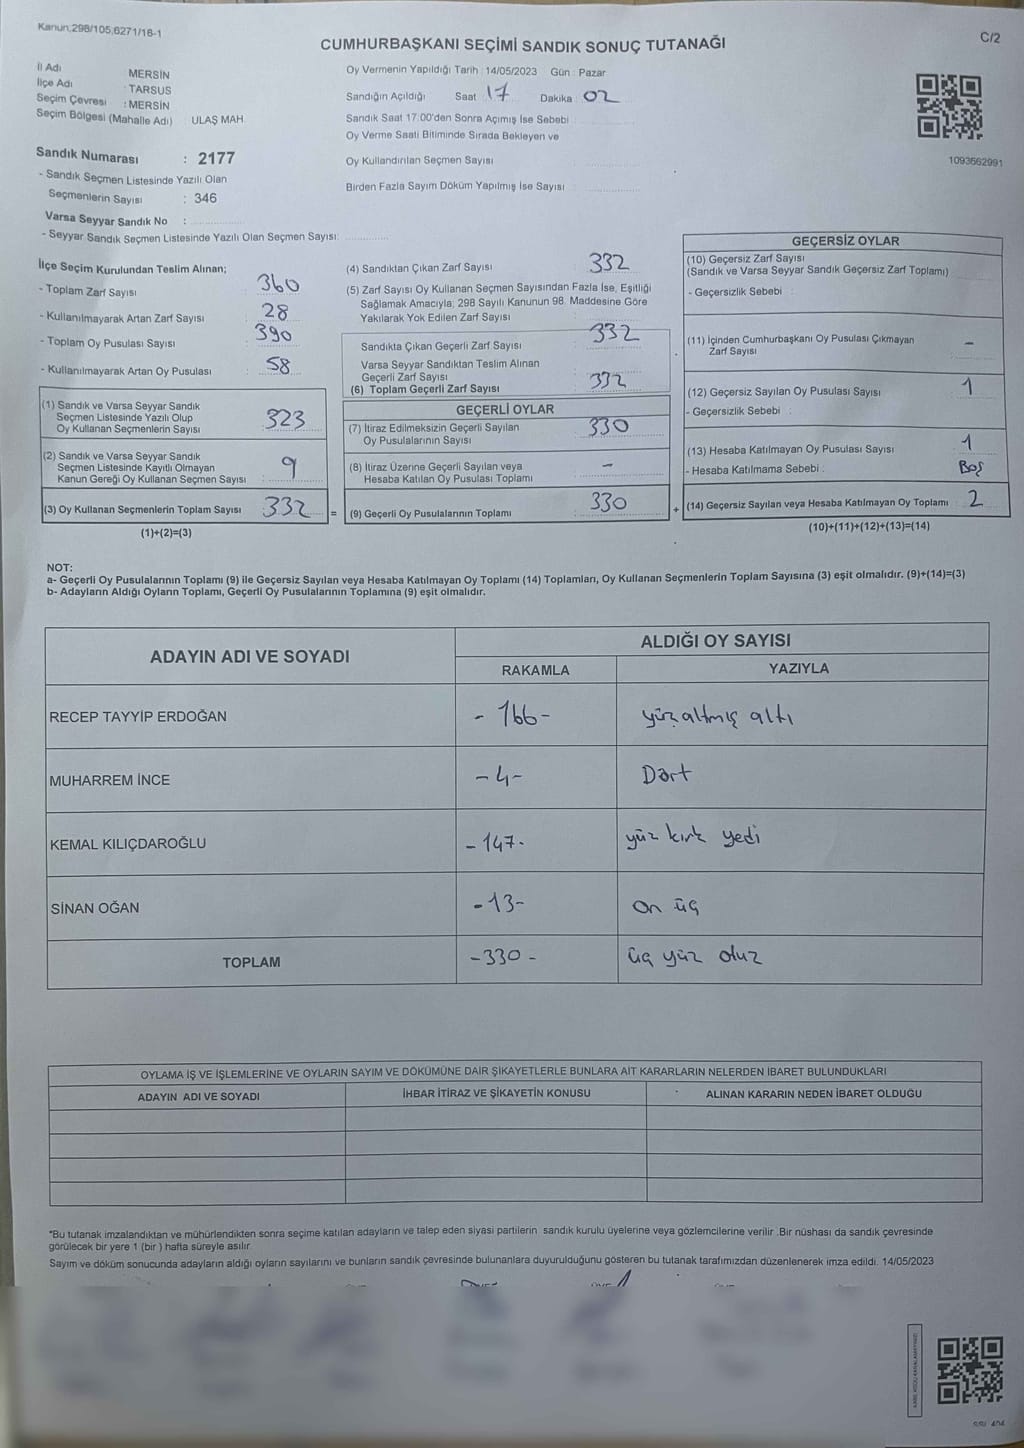 Kanun;298/105;6271/16-1
C/2
CUMHURBAŞKANI SEÇİMİ SANDIK SONUÇ TUTANAĞI
İl Adı MERSİN
İlçe Adı : TARSUS
Seçim Çevresi : MERSİN
Seçim Bölgesi (Mahalle Adı) : ULAŞ MAH.
Sandık Numarası : 2177
- Sandık Seçmen Listesinde Yazılı Olan
Seçmenlerin Sayısı : 346
Varsa Seyyar Sandık No :
- Seyyar Sandık Seçmen Listesinde Yazılı Olan Seçmen Sayısı:
Oy Vermenin Yapıldığı Tarih : 14/05/2023 Gün : Pazar
Sandığın Açıldığı Saat 17 Dakika : 02
Sandık Saat 17:00'den Sonra Açımış İse Sebebi
Oy Verme Saati Bitiminde Sırada Bekleyen ve
Oy Kullandırılan Seçmen Sayısı
Birden Fazla Sayım Döküm Yapılmış İse Sayısı
1093662991
İlçe Seçim Kurulundan Teslim Alınan;
- Toplam Zarf Sayısı : 360
- Kullanılmayarak Artan Zarf Sayısı : 28
- Toplam Oy Pusulası Sayısı : 390
- Kullanılmayarak Artan Oy Pusulası : 58
(1) Sandık ve Varsa Seyyar Sandık
Seçmen Listesinde Yazılı Olup
Oy Kullanan Seçmenlerin Sayısı : 323
(2) Sandık ve Varsa Seyyar Sandık
Seçmen Listesinde Kayıtlı Olmayan
Kanun Gereği Oy Kullanan Seçmen Sayısı : 9
(3) Oy Kullanan Seçmenlerin Toplam Sayısı : 332 =
(1)+(2)=(3)
(4) Sandıktan Çıkan Zarf Sayısı : 332
(5) Zarf Sayısı Oy Kullanan Seçmen Sayısından Fazla İse, Eşitliği
Sağlamak Amacıyla; 298 Sayılı Kanunun 98. Maddesine Göre
Yakılarak Yok Edilen Zarf Sayısı
Sandıkta Çıkan Geçerli Zarf Sayısı : 332
Varsa Seyyar Sandıktan Teslim Alınan
Geçerli Zarf Sayısı
(6) Toplam Geçerli Zarf Sayısı : 332
GEÇERLİ OYLAR
(7) İtiraz Edilmeksizin Geçerli Sayılan
Oy Pusulalarının Sayısı : 330
(8) İtiraz Üzerine Geçerli Sayılan veya
Hesaba Katılan Oy Pusulası Toplamı : -
(9) Geçerli Oy Pusulalarının Toplamı : 330 +
GEÇERSİZ OYLAR
(10) Geçersiz Zarf Sayısı
(Sandık ve Varsa Seyyar Sandık Geçersiz Zarf Toplamı)
- Geçersizlik Sebebi :
(11) İçinden Cumhurbaşkanı Oy Pusulası Çıkmayan
Zarf Sayısı -
(12) Geçersiz Sayılan Oy Pusulası Sayısı 1
- Geçersizlik Sebebi :
(13) Hesaba Katılmayan Oy Pusulası Sayısı 1
- Hesaba Katılmama Sebebi : Boş
(14) Geçersiz Sayılan veya Hesaba Katılmayan Oy Toplamı 2
(10)+(11)+(12)+(13)=(14)
NOT:
a- Geçerli Oy Pusulalarının Toplamı (9) ile Geçersiz Sayılan veya Hesaba Katılmayan Oy Toplamı (14) Toplamları, Oy Kullanan Seçmenlerin Toplam Sayısına (3) eşit olmalıdır. (9)+(14)=(3)
b- Adayların Aldığı Oyların Toplamı, Geçerli Oy Pusulalarının Toplamına (9) eşit olmalıdır.
ADAYIN ADI VE SOYADI
ALDIĞI OY SAYISI
RAKAMLA YAZIYLA
RECEP TAYYİP ERDOĞAN -166- yüzaltmış altı
MUHARREM İNCE -4- Dört
KEMAL KILIÇDAROĞLU -147- yüz kırk yedi
SİNAN OĞAN -13- on üç
TOPLAM -330- üç yüz otuz
OYLAMA İŞ VE İŞLEMLERİNE VE OYLARIN SAYIM VE DÖKÜMÜNE DAİR ŞİKAYETLERLE BUNLARA AİT KARARLARIN NELERDEN İBARET BULUNDUKLARI
ADAYIN ADI VE SOYADI İHBAR İTİRAZ VE ŞİKAYETİN KONUSU ALINAN KARARIN NEDEN İBARET OLDUĞU
*Bu tutanak imzalandıktan ve mühürlendikten sonra seçime katılan adayların ve talep eden siyasi partilerin sandık kurulu üyelerine veya gözlemcilerine verilir .Bir nüshası da sandık çevresinde
görülecek bir yere 1 (bir ) hafta süreyle asılır.
Sayım ve döküm sonucunda adayların aldığı oyların sayılarını ve bunların sandık çevresinde bulunanlara duyurulduğunu gösteren bu tutanak tarafımızdan düzenlenerek imza edildi. 14/05/2023